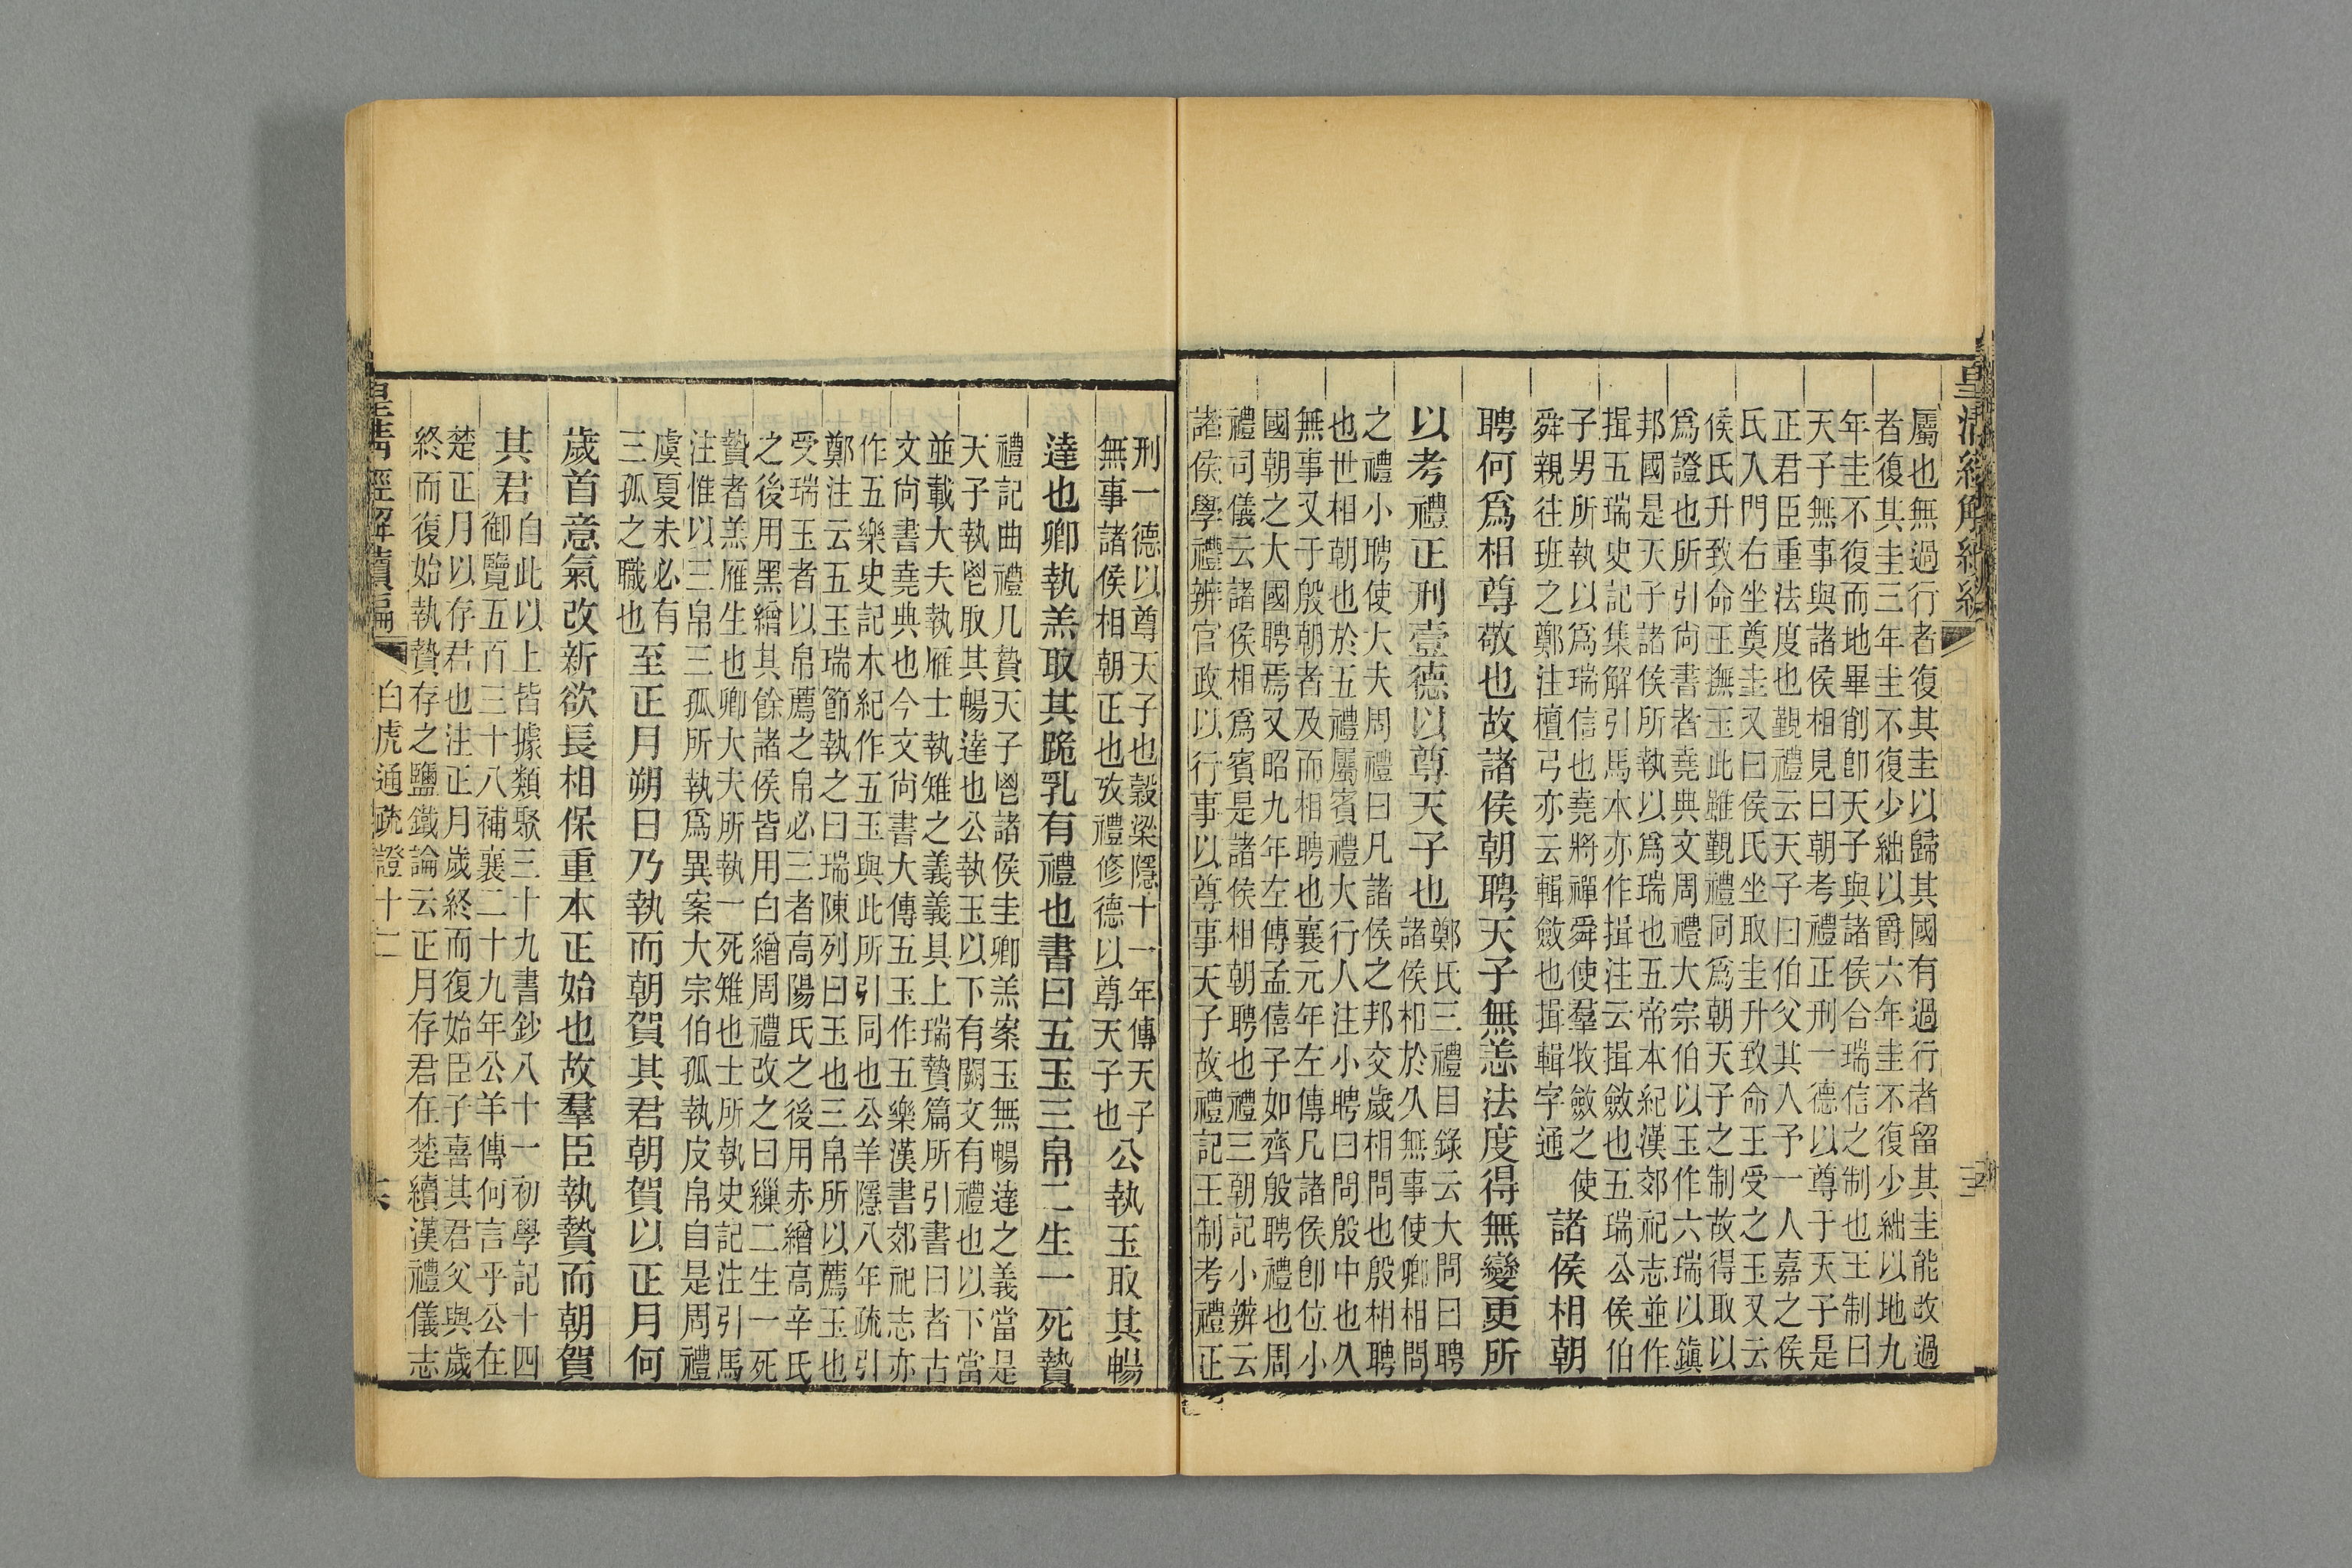 皇清經解續編
屬也無過行者復其圭以歸其國有過行者留其圭能改過
者復其圭三年圭不復少絀以爵六年圭不復少絀以地九
年圭不復而地畢削卽天子與諸侯合瑞信之制也王制曰
天子無事與諸侯相見曰朝考禮正刑一德以尊于天子是
正君臣重法度也覲禮云天子曰伯父其入予一人嘉之侯
氏入門右坐奠圭又曰侯氏坐取圭升致命王受之玉又云
侯氏升致命王撫玉此雖覲禮同爲朝天子之制故得取以
爲證也所引尚書者堯典文周禮大宗伯以玉作六瑞以鎮
邦國是天子諸侯所執以爲瑞也五帝本紀漢郊祀志並作
揖五瑞史記集解引馬本亦作揖注云揖斂也五瑞公侯伯
子男所執以爲瑞信也堯將禪舜使羣牧斂之使
舜親往班之鄭注檀弓亦云輯斂也揖輯字通
諸侯相朝
聘何爲相尊敬也故諸侯朝聘天子無恙法度得無變更所
以考禮正刑壹德以尊天子也
鄭氏三禮目錄云大問曰聘
諸侯相於久無事使卿相問
之禮小聘使大夫周禮曰凡諸侯之邦交歲相問也殷相聘
也世相朝也於五禮屬賓禮大行人注小聘曰問殷中也久
無事又于殷朝者及而相聘也襄元年左傳凡諸侯卽位小
國朝之大國聘焉又昭九年左傳孟僖子如齊殷聘禮也周
禮司儀云諸侯相爲賓是諸侯相朝聘也禮三朝記小辨云
諸侯學禮辨官政以行事以尊事天子故禮記王制考禮正
刑一德以尊天子也穀梁隱十一年傳天子
無事諸侯相朝正也攷禮修德以尊天子也
公執玉取其暢
達也卿執羔取其跪乳有禮也書曰五玉三帛二生一死贄
禮記曲禮几贄天子鬯諸侯圭卿羔案玉無暢達之義當是
天子執鬯取其暢達也公執玉以下有闕文有禮也以下當
並載大夫執雁士執雉之義義具上瑞贄篇所引書曰者古
文尚書堯典也今文尚書大傳五玉作五樂漢書郊祀志亦
作五樂史記本紀作五玉與此所引同也公羊隱八年疏引
鄭注云五玉瑞節執之曰瑞陳列曰玉也三帛所以薦玉也
受瑞玉者以帛薦之帛必三者高陽氏之後用赤繒高辛氏
之後用黑繒其餘諸侯皆用白繒周禮改之曰繅二生一死
贄者羔雁生也卿大夫所執一死雉也士所執史記注引馬
注惟以三帛三孤所執爲異案大宗伯孤執皮帛自是周禮
虞夏未必有
三孤之職也
至正月朔日乃執而朝賀其君朝賀以正月何
歲首意氣改新欲長相保重本正始也故羣臣執贄而朝賀
其君
自此以上皆據類聚三十九書鈔八十一初學記十四
御覽五百三十八補襄二十九年公羊傳何言乎公在
楚正月以存君也注正月歲終而復始臣子喜其君父與歲
終而復始執贄存之鹽鐵論云正月存君在楚續漢禮儀志
皇清經解續編
白虎通疏證十二